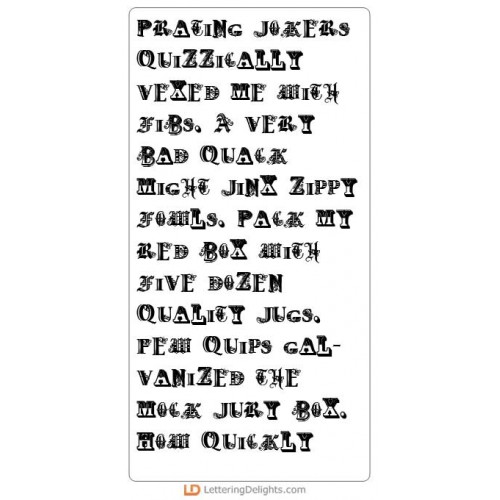 PRATING JOKERS
QUIZZICALLY
VEXED ME WITH
FIBS. A VERY
BAD QUACK
MIGHT JINX ZIPPY
FOWLS. PACK MY
RED BOX WITH
FIVE DOZEN
QUALITY JUGS.
FEW QUIPS GAL-
VANIZED THE
MOCK JURY BOX.
HOW QUICKLY
LD LetteringDelights.com